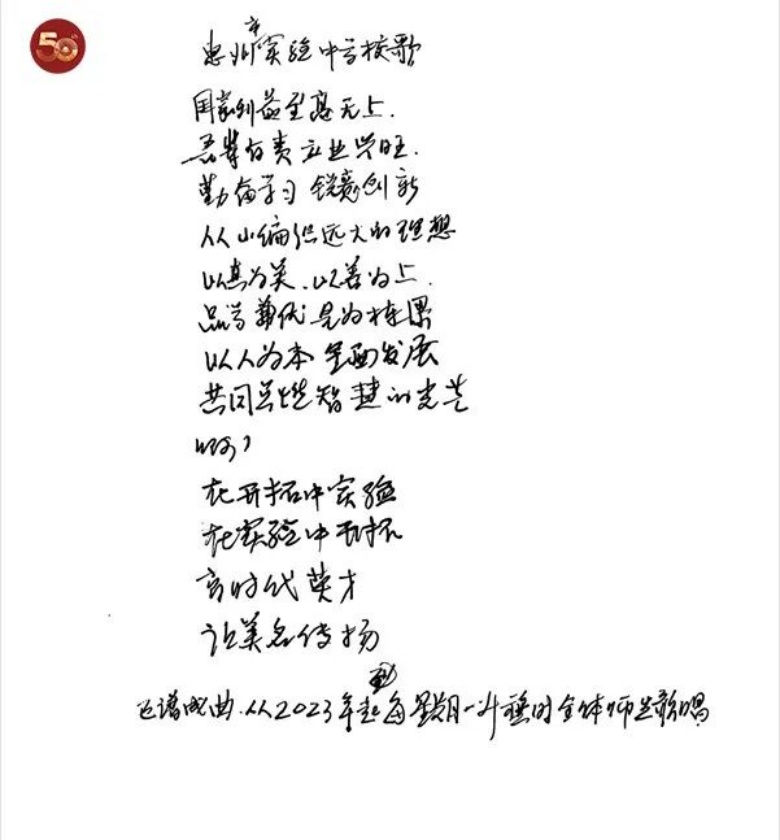 50th
惠州市实验中学校歌
国家利益至高无上.
吾辈有责立业兴旺.
勤奋学习 锐意创新
从小编织远大的理想
以真为美、以善为上.
品学兼优是为栋梁
以人为本 全面发展
共同点燃智慧的光芒
啊，
在开拓中实验
在实验中开拓
育时代英才
让美名传扬
已谱成曲.从2023年起每星期一升旗时全体师生歌唱